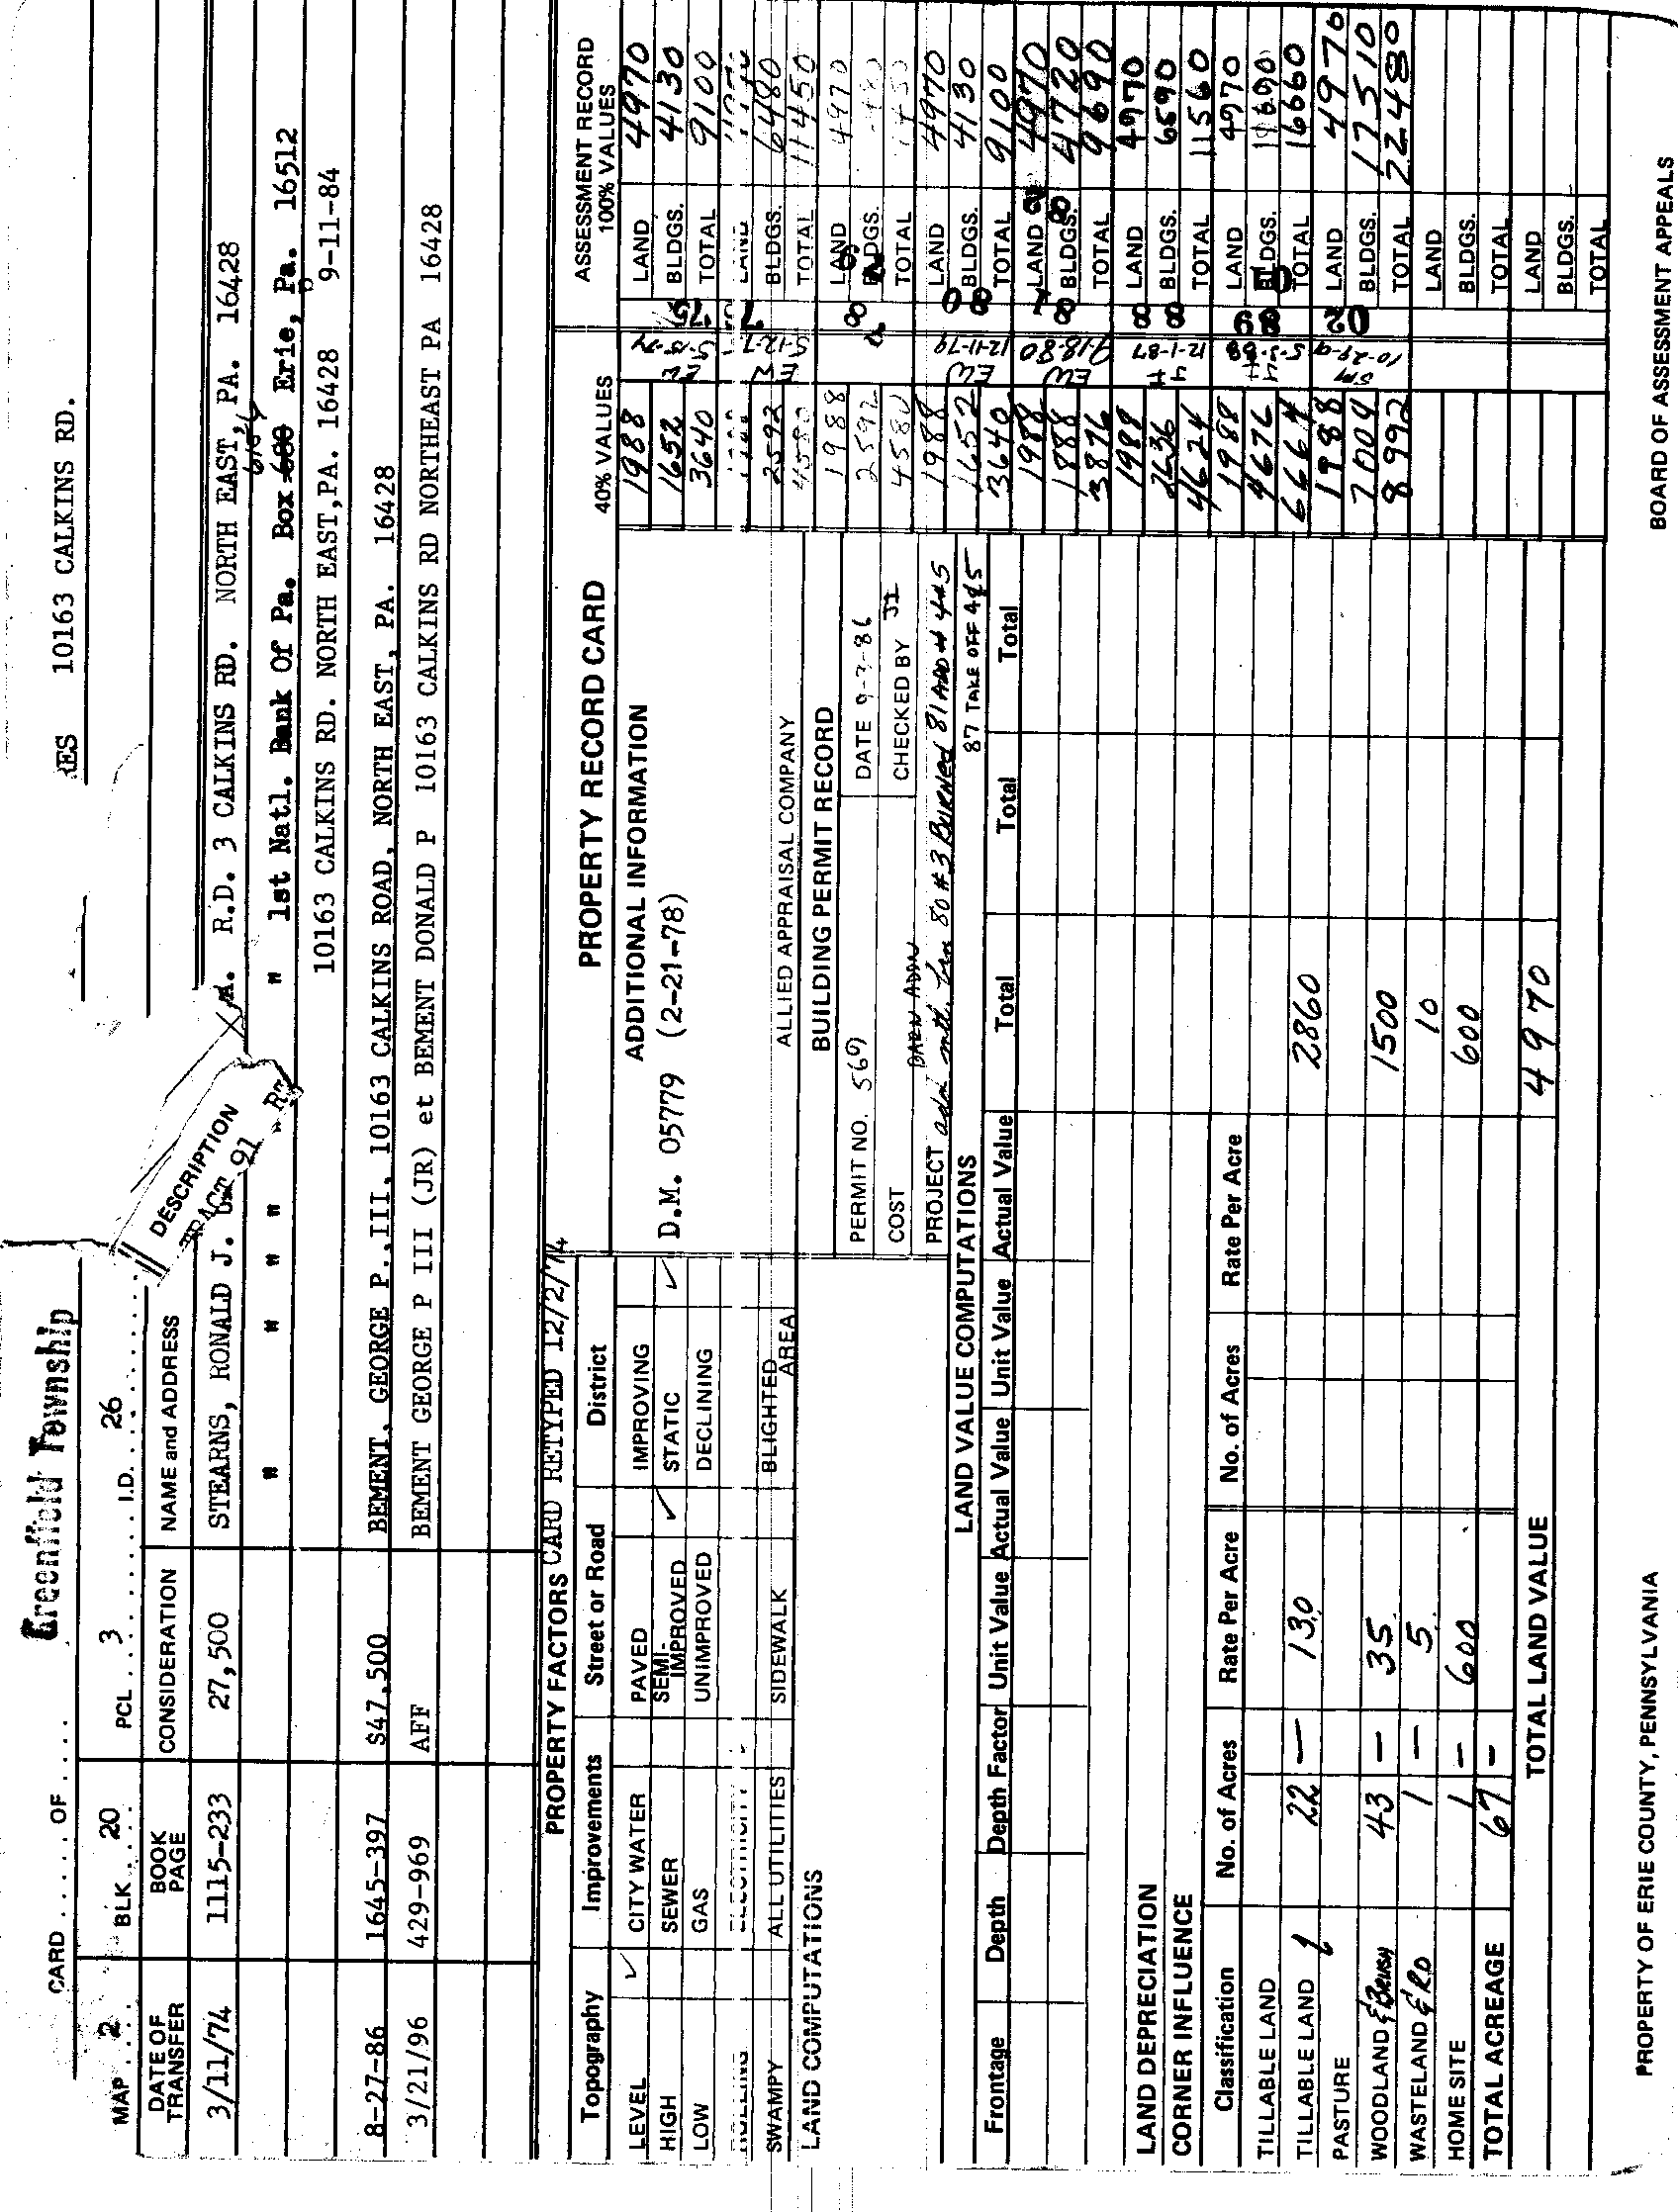 Greenfield Township
CARD ..... OF .....
10163 CALKINS RD.
MAP 2 BLK. 20 PCL. 3 I.D. 26
DATE OF TRANSFER BOOK PAGE CONSIDERATION NAME and ADDRESS DESCRIPTION
TRACT 91
3/11/74 1115-233 27,500 STEARNS, RONALD J. R.D. 3 CALKINS RD. NORTH EAST, PA. 16428
" " " " " 1st Natl. Bank Of Pa. Box Erie, Pa. 16512
10163 CALKINS RD. NORTH EAST,PA. 16428 9-11-84
8-27-86 1645-397 $47,500 BEMENT, GEORGE P.,III, 10163 CALKINS ROAD, NORTH EAST, PA. 16428
3/21/96 429-969 AFF BEMENT GEORGE P III (JR) et BEMENT DONALD P 10163 CALKINS RD NORTHEAST PA 16428
PROPERTY FACTORS CARD RETYPED 12/2/74
Topography Improvements Street or Road District
LEVEL ✓ CITY WATER PAVED IMPROVING
HIGH SEWER SEMI-IMPROVED ✓ STATIC ✓
LOW GAS UNIMPROVED DECLINING
ROLLING ELECTRICITY
SWAMPY ALL UTILITIES SIDEWALK BLIGHTED AREA
PROPERTY RECORD CARD
ADDITIONAL INFORMATION
D.M. 05779 (2-21-78)
ALLIED APPRAISAL COMPANY
BUILDING PERMIT RECORD
PERMIT NO. 569 DATE 9-3-86
COST CHECKED BY JI
BARN ADDN
PROJECT 80 #3 BURNED 81 ADD # 4&5
87 TAKE OFF 4&5
40% VALUES ASSESSMENT RECORD 100% VALUES
1988 LAND 4970
1652 EW 5-15-74 '75 BLDGS. 4130
3640 TOTAL 9100
LAND
2592 EW BLDGS. 6480
4580 TOTAL 11450
1988 LAND 4970
2592 BLDGS.
4580 TOTAL
1988 LAND 4970
1652 EW 12-11-79 80 BLDGS. 4130
3640 TOTAL 9100
1988 LAND 4970
1888 EW 9-18-80 81 BLDGS. 4720
3876 TOTAL 9690
1988 LAND 4970
2636 12-1-87 88 BLDGS. 6590
4624 TOTAL 11560
1988 LAND 4970
4676 89 BLDGS. 11690
6664 TOTAL 16660
1988 LAND 4970
7004 SM 02 BLDGS. 17510
8992 TOTAL 22480
LAND
BLDGS.
TOTAL
LAND
BLDGS.
TOTAL
LAND COMPUTATIONS
LAND VALUE COMPUTATIONS
Frontage Depth Depth Factor Unit Value Actual Value Unit Value Actual Value Total Total Total
LAND DEPRECIATION
CORNER INFLUENCE
Classification No. of Acres Rate Per Acre No. of Acres Rate Per Acre
TILLABLE LAND
TILLABLE LAND 22 — 130 2860
PASTURE
WOODLAND & BRUSH 43 — 35 1500
WASTELAND & RD 1 — 5 10
HOME SITE 1 — 600 600
TOTAL ACREAGE 67 —
TOTAL LAND VALUE 4970
PROPERTY OF ERIE COUNTY, PENNSYLVANIA BOARD OF ASSESSMENT APPEALS